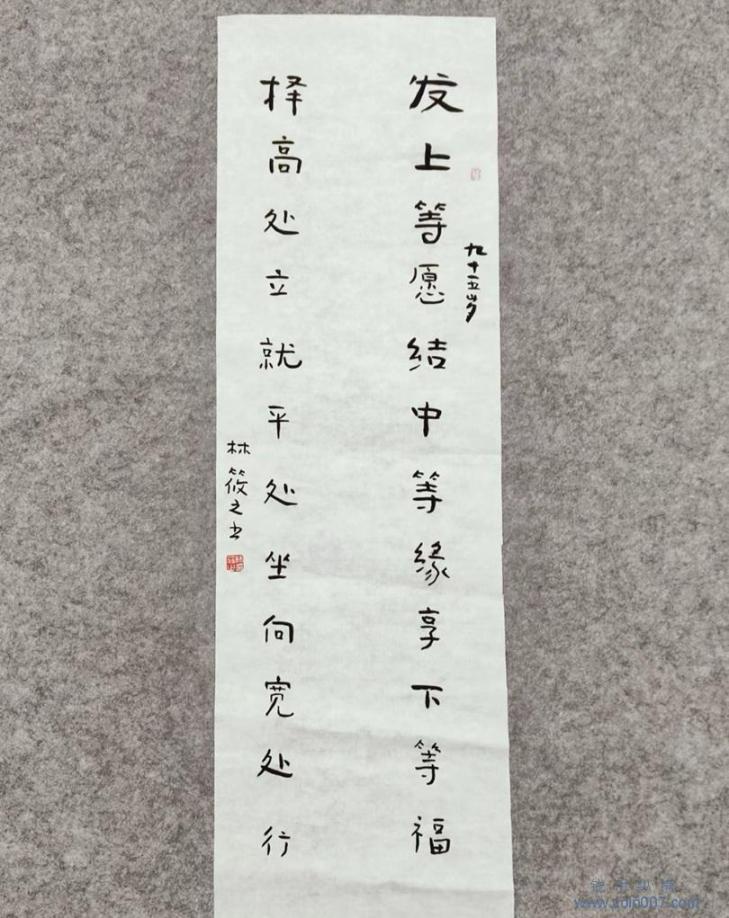 发上等愿结中等缘享下等福
九十五岁
择高处立就平处坐向宽处行
林筱之书